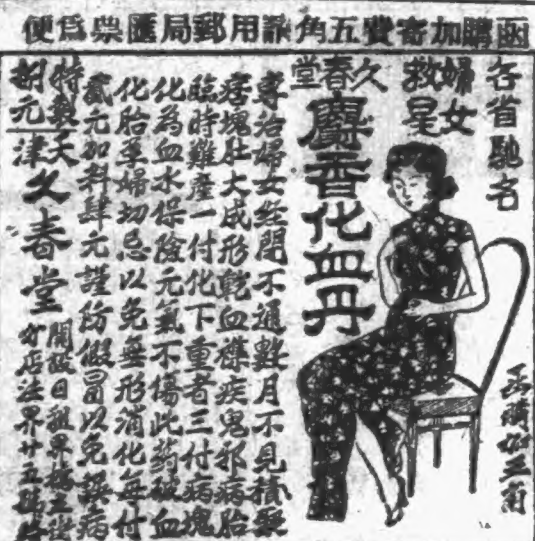 函購加寄費五角請用郵局匯票爲便
各省馳名
婦女
救星
久春堂
麝香化血丹
函購加三角
專治婦女經閉不通數月不見積聚
痞塊肚大成形乾血襍疾鬼邪病胎
臨時難產一付化下重者三付病塊
化為血水保險元氣不傷此药破血
化胎孕婦切忌以免無形消化每付
貳元加料肆元謹防假冒以免誤病
特製
捌元
天津久春堂
開設日租界橋立街
分店法界廿五號路